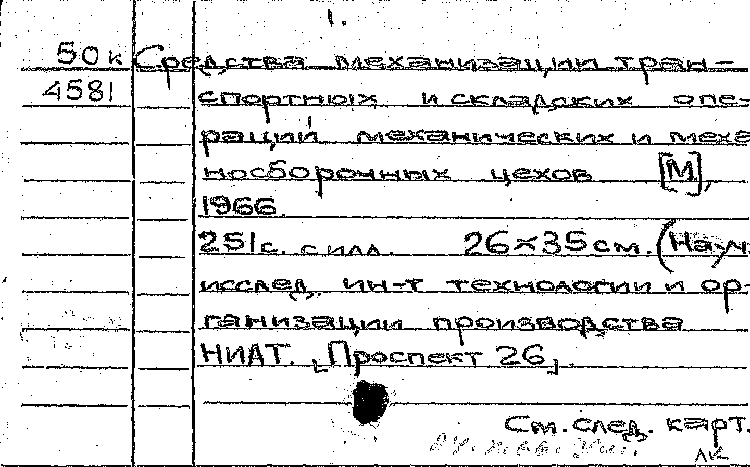 1.
50к Средства механизации тран-
4581 спортных и складских опе-
раций механических и меха
носборочных цехов [М],
1966.
251с. с илл. 26×35 см. (Науч.
исслед. ин-т технологии и ор-
ганизации производства
НИАТ. „Проспект 26„
См. след. карт.
ЛК